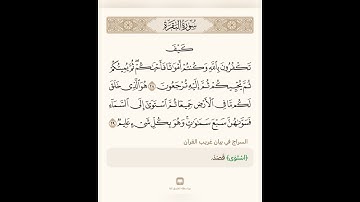 سُورَةُ البَقَرَةِ
كَيْفَ
تَكْفُرُونَ بِاللَّهِ وَكُنتُمْ أَمْوَاتًا فَأَحْيَاكُمْ ثُمَّ يُمِيتُكُمْ
ثُمَّ يُحْيِيكُمْ ثُمَّ إِلَيْهِ تُرْجَعُونَ ٢٨ هُوَ الَّذِي خَلَقَ
لَكُم مَّا فِي الْأَرْضِ جَمِيعًا ثُمَّ اسْتَوَىٰ إِلَى السَّمَاءِ
فَسَوَّاهُنَّ سَبْعَ سَمَاوَاتٍ وَهُوَ بِكُلِّ شَيْءٍ عَلِيمٌ ٢٩
السراج في بيان غريب القرآن
﴿اسْتَوَى﴾ قَصَدَ.